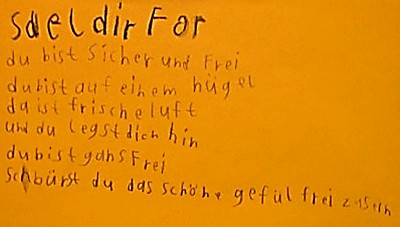 sdel dir For
du bist Sicher und Frei
du bist auf einem hügel
da ist frische luft
und du legst dich hin
du bist gans Frei
Schbürst du das schöhe gefül frei zusein